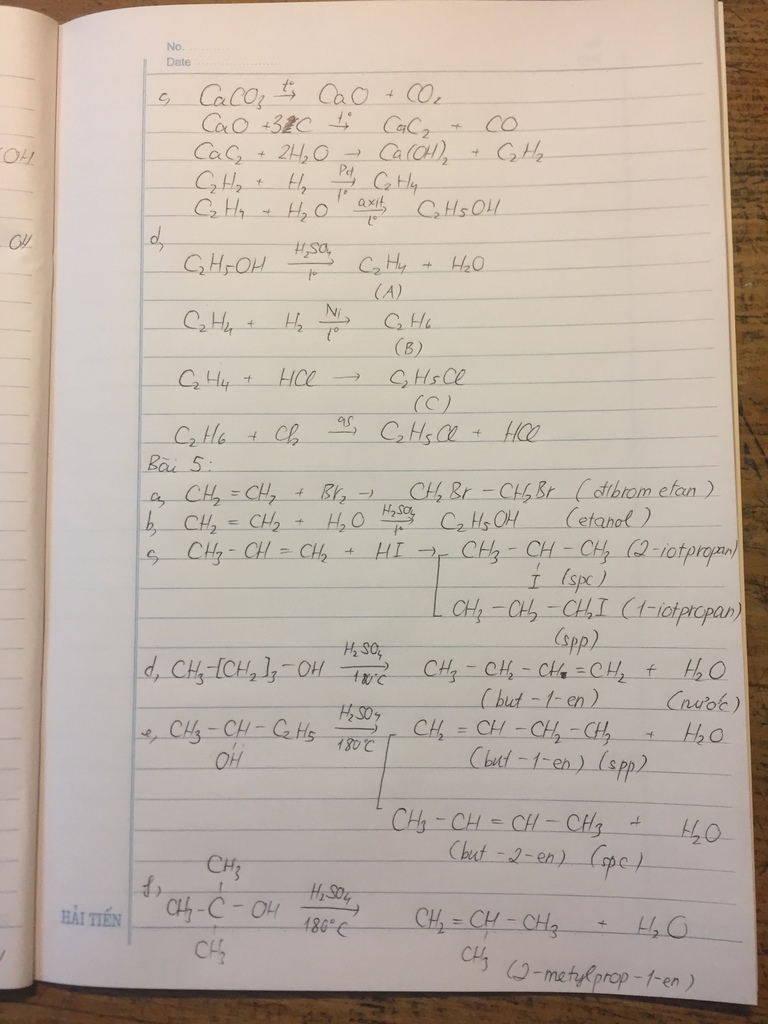 No.
Date
c, CaCO₃ →(t°) CaO + CO₂
CaO + 3C →(t°) CaC₂ + CO
CaC₂ + 2H₂O → Ca(OH)₂ + C₂H₂
OH
C₂H₂ + H₂ →(Pd, t°) C₂H₄
C₂H₄ + H₂O →(axit, t°) C₂H₅OH
OH
d,
C₂H₅OH →(H₂SO₄, t°) C₂H₄ + H₂O
(A)
C₂H₄ + H₂ →(Ni, t°) C₂H₆
(B)
C₂H₄ + HCl → C₂H₅Cl
(C)
C₂H₆ + Cl₂ →(as) C₂H₅Cl + HCl
Bài 5:
a, CH₂ = CH₂ + Br₂ → CH₂Br – CH₂Br (đibrom etan)
b, CH₂ = CH₂ + H₂O →(H₂SO₄, t°) C₂H₅OH (etanol)
c, CH₃ – CH = CH₂ + HI → CH₃ – CH – CH₃ (2-iotpropan)
I (spc)
CH₃ – CH₂ – CH₂I (1-iotpropan)
(spp)
d, CH₃ –[CH₂]₃ – OH →(H₂SO₄, 180°C) CH₃ – CH₂ – CH = CH₂ + H₂O
(but-1-en) (nước)
e, CH₃ – CH – C₂H₅ →(H₂SO₄, 180°C) CH₂ = CH – CH₂ – CH₃ + H₂O
OH (but-1-en) (spp)
CH₃ – CH = CH – CH₃ + H₂O
(but-2-en) (spc)
CH₃
f, CH₃ – C – OH →(H₂SO₄, 180°C) CH₂ = CH – CH₃ + H₂O
CH₃ CH₃ (2-metylprop-1-en)
HẢI TIẾN